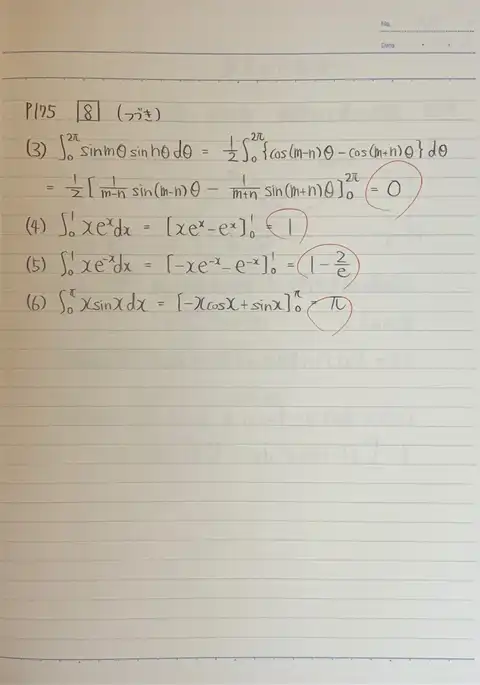 No.
Date ・ ・
P175 [8] (つづき)
(3) ∫₀^{2π} sin mθ sin nθ dθ = 1/2 ∫₀^{2π} {cos(m-n)θ - cos(m+n)θ} dθ
= 1/2 [ 1/(m-n) sin(m-n)θ - 1/(m+n) sin(m+n)θ ]₀^{2π} = 0
(4) ∫₀^1 xe^x dx = [xe^x - e^x]₀^1 = 1
(5) ∫₀^1 xe^{-x} dx = [-xe^{-x} - e^{-x}]₀^1 = 1 - 2/e
(6) ∫₀^π x sin x dx = [-x cos x + sin x]₀^π = π